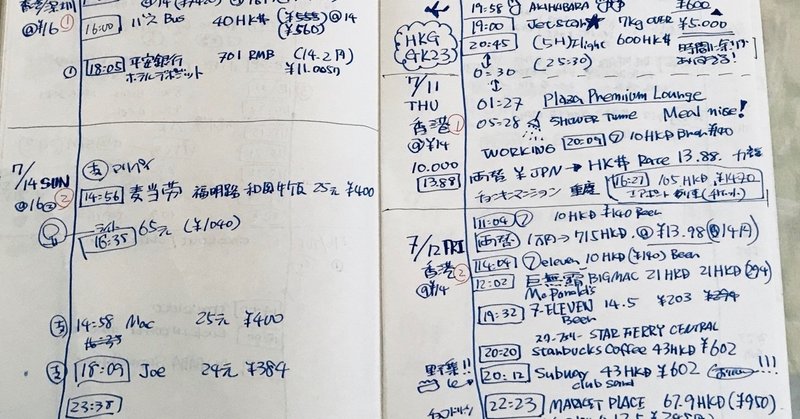 16:00 バス Bus 40HK$ (¥555) @14
(¥560)
@¥16 ①
18:05 平安銀行 701 RMB (14.2円)
ホテルデポジット ¥11.005
7/14 SUN
@16 ②
14:56 麦当劳 福明路 25元 ¥400
18:35 65元 (¥1040)
14:58 Mac 25元 ¥400
18:09 Joe 24元 ¥384
23:38
19:58 AKIHABARA ¥600
19:00 Jetstar 7kg OVER ¥5.000
HKG
GK23
20:45 (5H) Flight 600HK$ 時間
0:30 (25:30)
7/11
THU
香港 ①
@¥14
10.000
13.88
01:27 Plaza Premium Lounge
05:28 SHOWER Time Meal nise!
WORKING 20:09 ⑦ 10HKD Beer ¥140
両替 ¥JPN → HK$ Rate 13.88.
チョンキーマンション 重慶 16:27 105HKD ¥1470
7/12 FRI
香港 ②
@¥14
11:04 ⑦ 10HKD ¥140 Beer
両替 1万円→715HKD, @¥13.98 (@14円)
14:04 ⑦eleven 10HKD (¥140) Beer
12:02 巨無霸 BIGMAC 21HKD 21HKD (294)
McDonald's
19:32 7-ELEVEN 14.5 ¥203 ¥294
Beer
スターフェリー STAR FERRY CENTRAL
20:20 Starbucks Coffee 43HKD ¥602
野菜!!
20:12 Subway 43HKD ¥602 !!!
club sand
22:23 MARKET PLACE 67.9HKD (¥950)